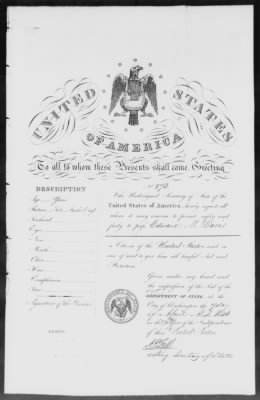 UNITED STATES
OF AMERICA
To all to whom these Presents shall come Greeting.
DESCRIPTION
Age Years
Stature Feet Inches
Forehead
Eyes
Nose
Mouth
Chin
Hair
Complexion
Face
Signature of the Bearer
GRATIS.
No
the Undersigned, Secretary of State of the
United States of America, hereby request all
whom it may concern to permit safely and
freely to pass Edward
a Citizen of the United States and in
case of need to give him all lawful Aid and
Protection.
Given under my hand and
the impression of the Seal of the
DEPARTMENT OF STATE, at the
City of Washington, the
of the Independence
of these United States.